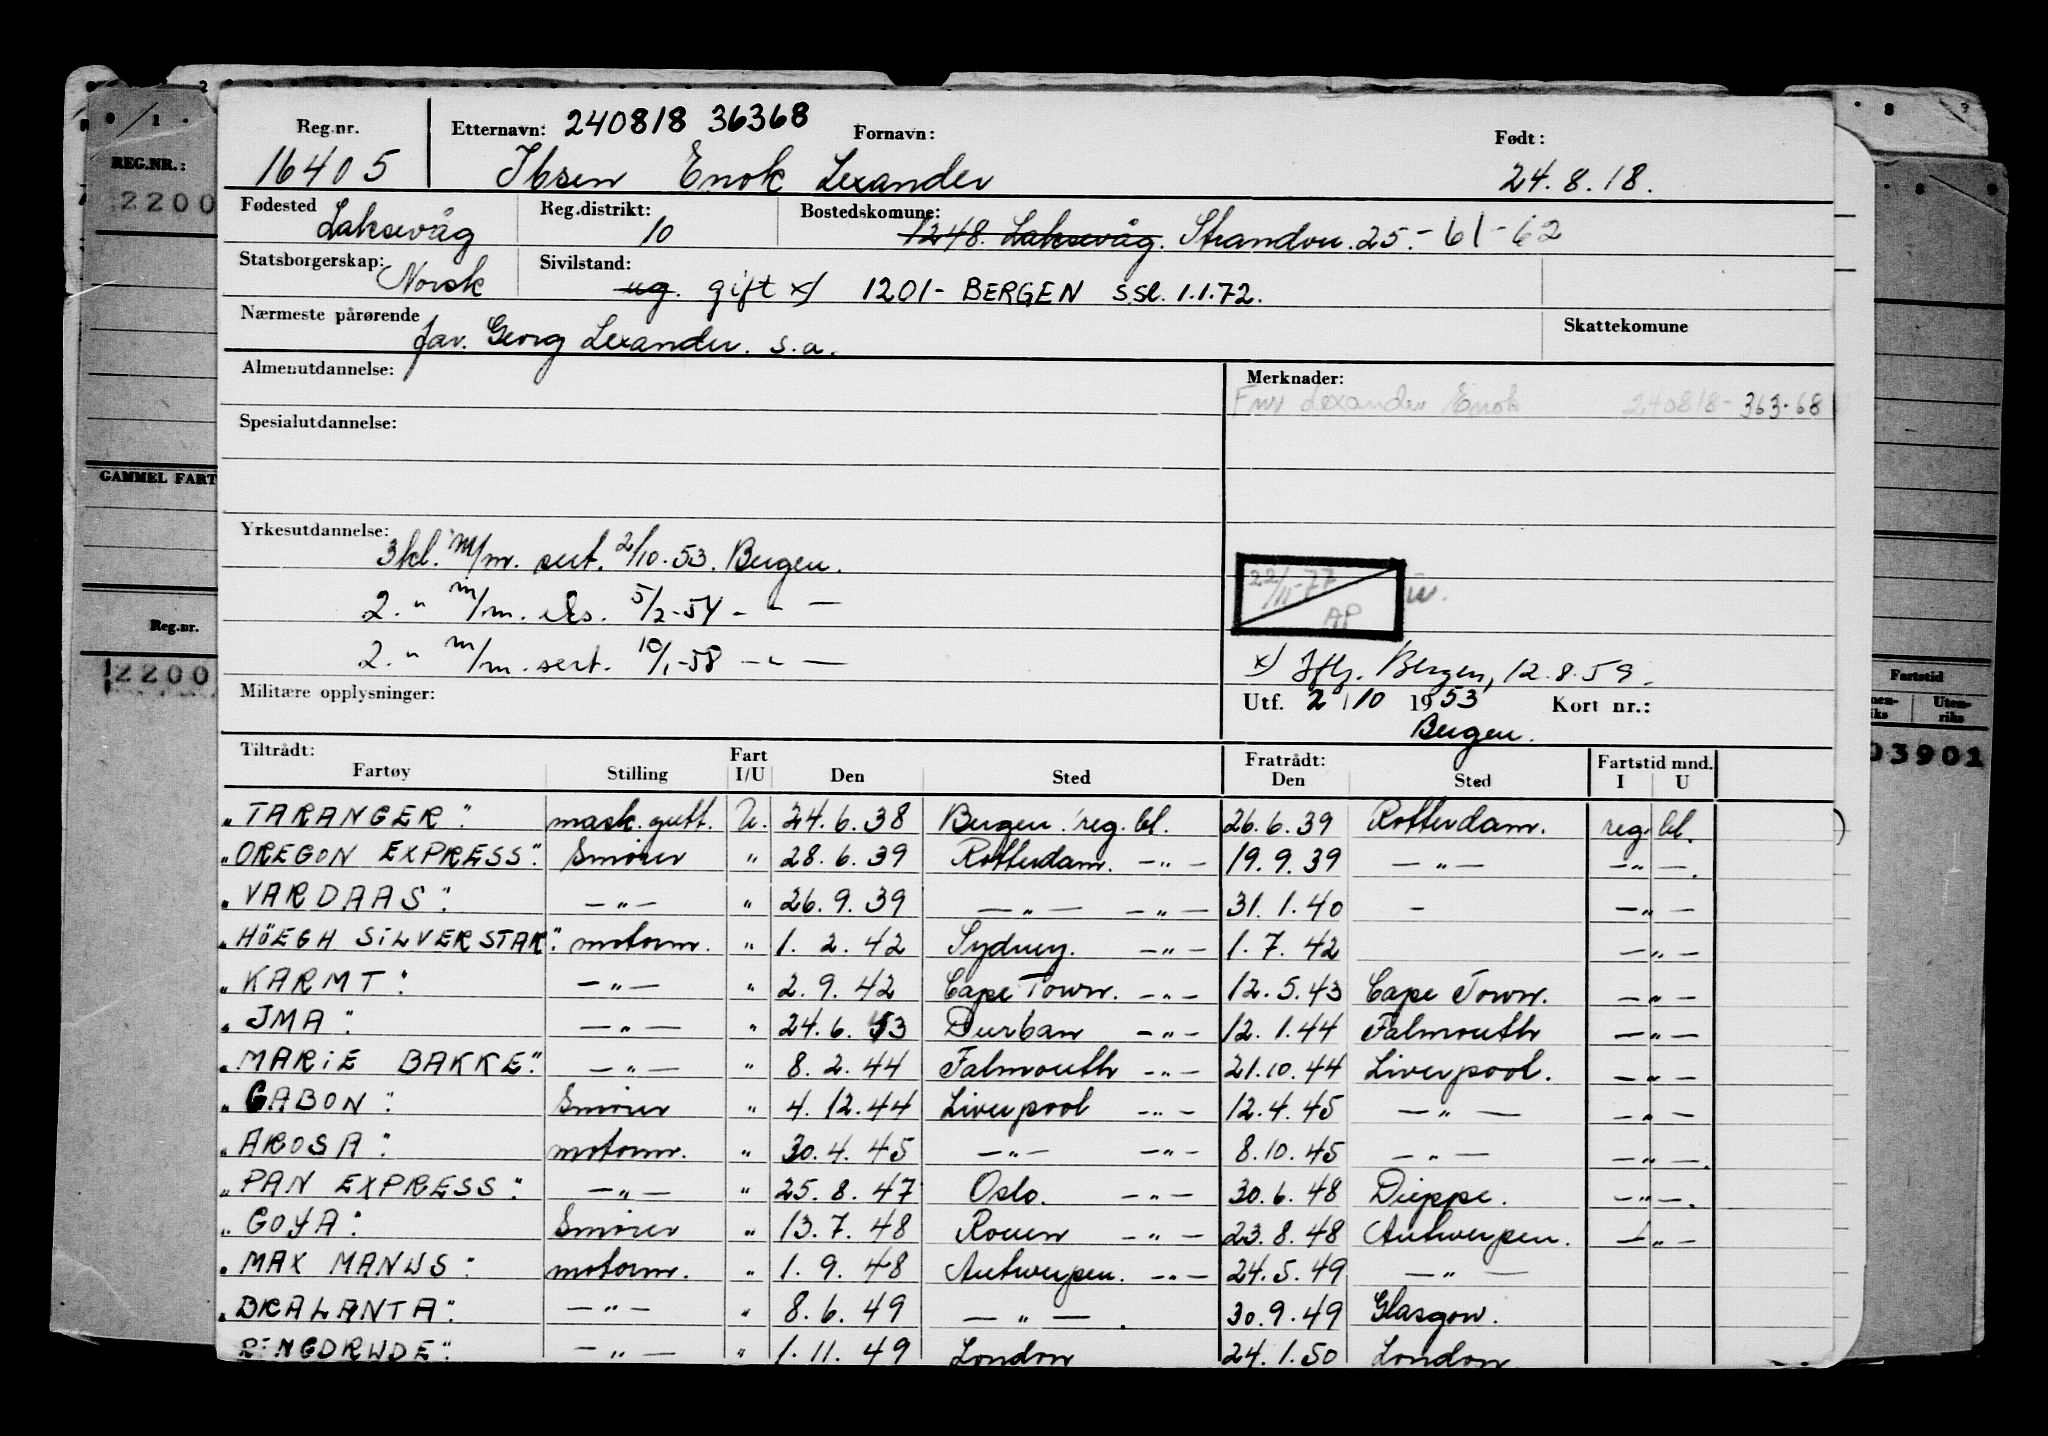 Reg.nr. Etternavn: 240818 36368 Fornavn: Født:
16405 Ibsen Enok Lexander 24.8.18.
Fødested Reg.distrikt: Bostedskomune:
Laksevåg 10 1248. Laksevåg. Strandvn. 25.-61-62
Statsborgerskap: Sivilstand:
Norsk ug. gift x) 1201- BERGEN s.sl. 1.1.72.
Nærmeste pårørende Skattekomune
far. Georg Lexander. s.a.
Almenutdannelse: Merknader:
Fnr Lexander Enok 240818- 363.68
Spesialutdannelse:
Yrkesutdannelse:
3kl. m/m. sert. 2/10-53. Bergen.
22/11-77
2. " m/m. eks. 5/2-54 - " -
AP
2. " m/m. sert. 10/1-58 - " -
x) Iflg. Bergen, 12.8.59.
Militære opplysninger: Utf. 2/10 1953 Kort nr.:
Bergen.
Tiltrådt: Fart Fratrådt: Fartstid mnd.
Fartøy Stilling I/U Den Sted Den Sted I U
"TARANGER". mask.gutt. U. 24.6.38 Bergen. reg. bl. 26.6.39 Rotterdam. reg. bl.
"OREGON EXPRESS". Smører " 28.6.39 Rotterdam. -"- 19.9.39 -"- -"-.
"VARDAAS". -"- " 26.9.39 -"- -"- 31.1.40 - -"-
"HÖEGH SILVERSTAR". motorm. " 1.2.42 Sydney. -"- 1.7.42 -"-
"KARMT". -"- " 2.9.42 Cape Town. -"- 12.5.43 Cape Town. -"-
"JMA". -"- " 24.6.43 Durban -"- 12.1.44 Falmouth -"-
"MARIE BAKKE". -"- " 8.2.44 Falmouth -"- 21.10.44 Liverpool. -"-
"GABON". Smører " 4.12.44 Liverpool -"- 12.4.45 -"- -"-
"AROSA". motorm. " 30.4.45 -"- -"- 8.10.45 -"- -"-.
"PAN EXPRESS". -"- " 25.8.47 Oslo. -"- 30.6.48 Dieppe. -"-.
"GOYA". Smører " 13.7.48 Rouen -"- 23.8.48 Antwerpen. -"-
"MAX MANUS". motorm. " 1.9.48 Antwerpen. -"- 24.5.49 -"-
"BRALANTA". -"- " 8.6.49 -"-. 30.9.49 Glasgow.
RINGDRUDE". -"- " 1.11.49 London 24.1.50 London
REG.NR.:
2200
GAMMEL FART
Reg.nr.
2200
Fartstid
Uten-
riks
03901